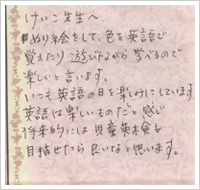 けいこ先生へ
ぬり絵をして、色を英語で
覚えたり 遊びながら 学べるので
楽しいと言います。
いつも英語の日を楽しみにしています
英語は楽しいものだと感じ
将来的には児童英検も
目指せたら良いなと思います。